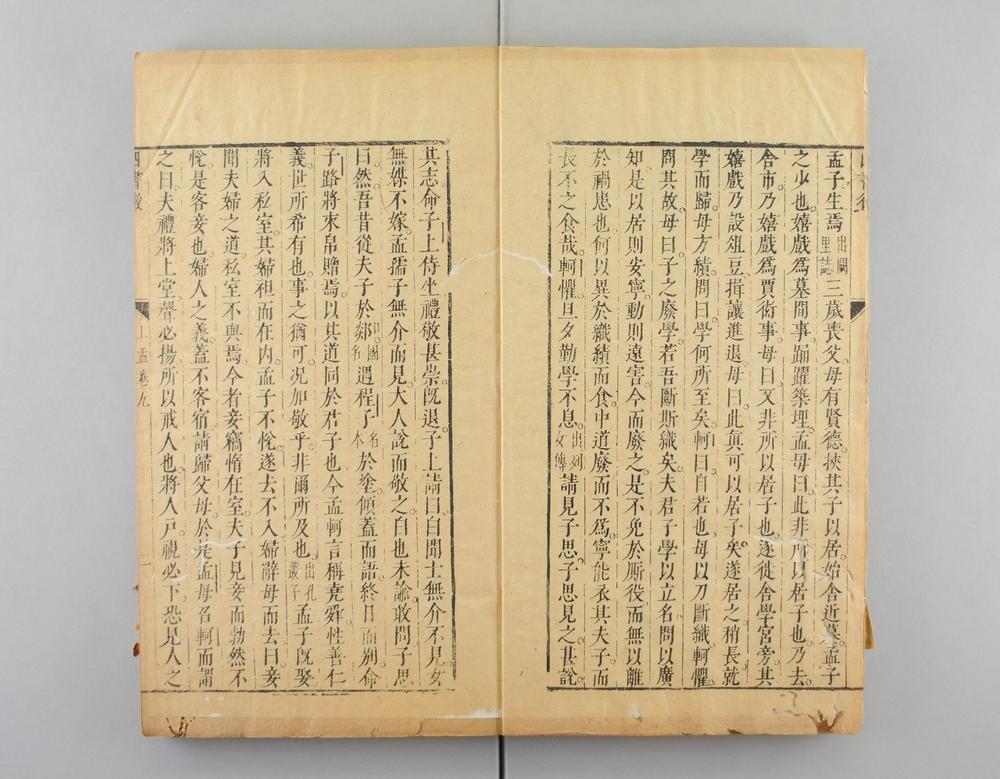 孟子生焉出闕里誌三歲喪父母有賢德挾其子以居始舍近墓孟子
之少也嬉戲爲墓間事踊躍築埋孟母曰此非所以居子也乃去
舍市乃嬉戲爲賈衒事母曰又非所以居子也遂徙舍學宮旁其
嬉戲乃設俎豆揖讓進退母曰此眞可以居子矣遂居之稍長就
學而歸母方績問曰學何所至矣軻曰自若也母以刀斷織軻懼
問其故母曰子之廢學若吾斷斯織矣夫君子學以立名問以廣
知是以居則安寧動則遠害今而廢之是不免於厮役而無以離
於禍患也何以異於織績而食中道廢而不爲寧能衣其夫子而
長不乏食哉軻懼旦夕勤學不息出列女傳請見子思子思見之甚說
其志命子上侍坐禮敬甚崇旣退子上請曰白聞士無介不見女
無媒不嫁孟孺子無介而見大人說而敬之白也未諭敢問子思
曰然吾昔從夫子於郯國名遇程子名本於塗傾蓋而語終日而別命
子路將束帛贈焉以其道同於君子也今孟軻言稱堯舜性善仁
義世所希有也事之猶可况加敬乎非爾所及也出孔叢子孟子旣娶
將入私室其婦袒而在内孟子不悅遂去不入婦辭母而去曰妾
聞夫婦之道私室不與焉今者妾竊惰在室夫子見妾而勃然不
悅是客妾也婦人之義蓋不客宿請歸父母於是孟母召軻而謂
之曰夫禮將上堂聲必揚所以戒人也將入戸視必下恐見人之
上孟卷九
一